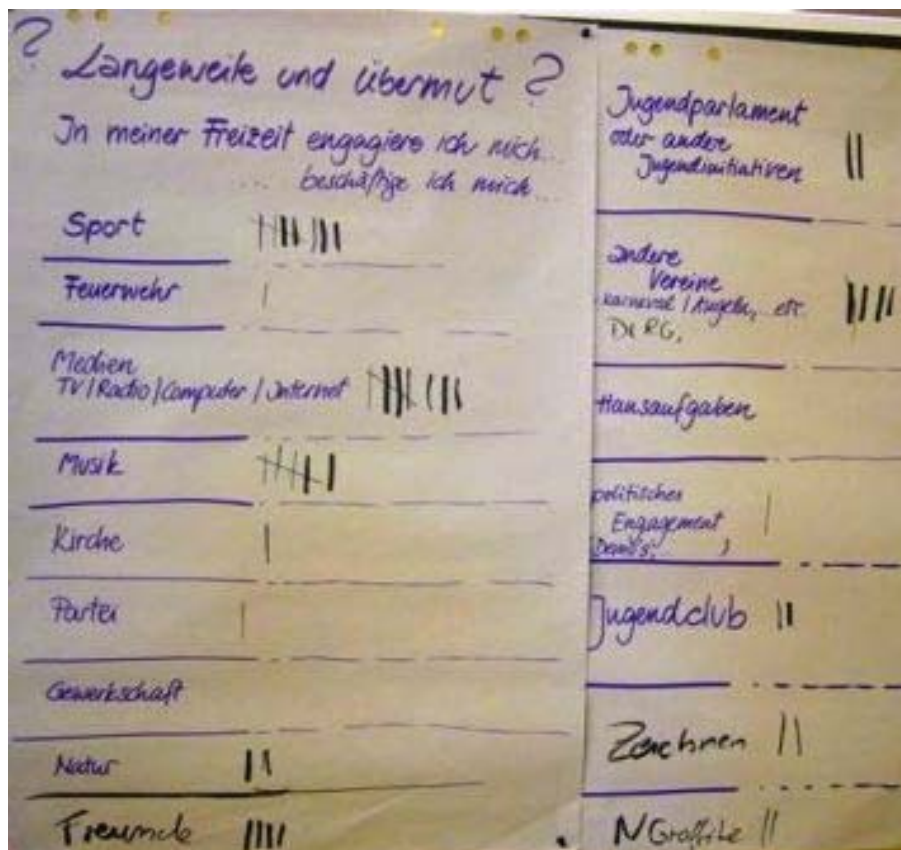 ? Langeweile und übermut ?
In meiner Freizeit engagiere ich mich...
... beschäftige ich mich...
Sport
Feuerwehr
Medien
TV / Radio / Computer / Internet
Musik
Kirche
Partei
Gewerkschaft
Natur
Freunde
Jugendparlament
oder andere
Jugendinitiativen
andere
Vereine
Karneval / Angeln, etc.
DLRG,
Hausaufgaben
politisches
Engagement
Demo's,
Jugendclub
Zeichnen